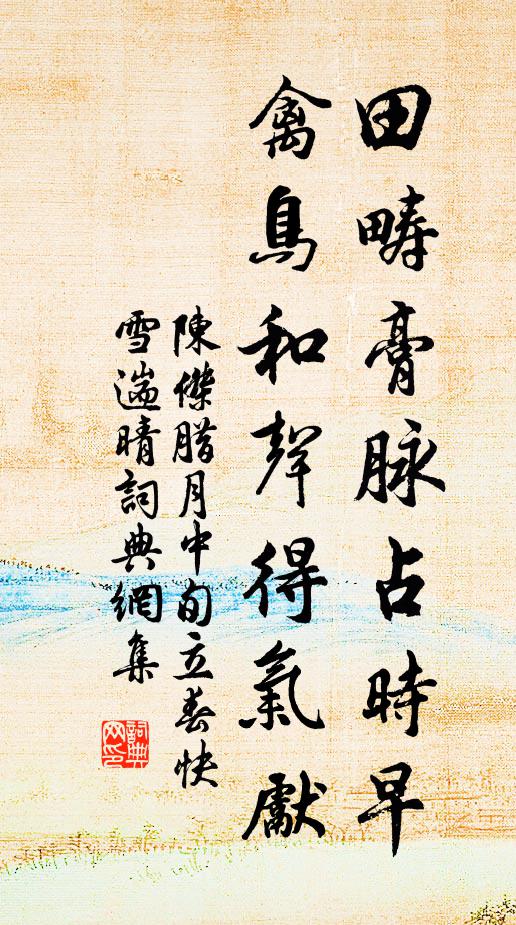 田疇膏脉占時早
禽鳥和聲得氣獻
陳傑臘月中旬立春快
雪遄晴詞典網集
詞典網印